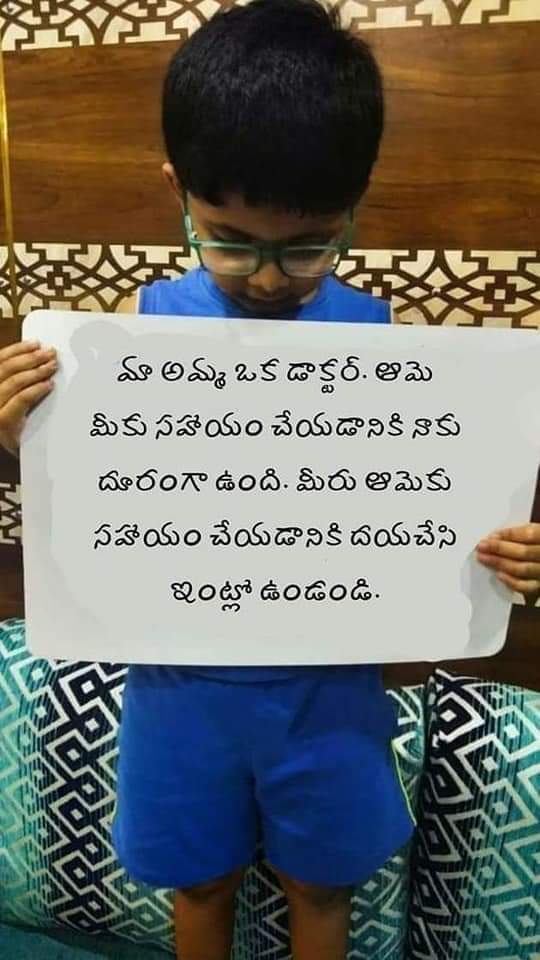 మా అమ్మ ఒక డాక్టర్. ఆమె
మీకు సహాయం చేయడానికి నాకు
దూరంగా ఉంది. మీరు ఆమెకు
సహాయం చేయడానికి దయచేసి
ఇంట్లో ఉండండి.